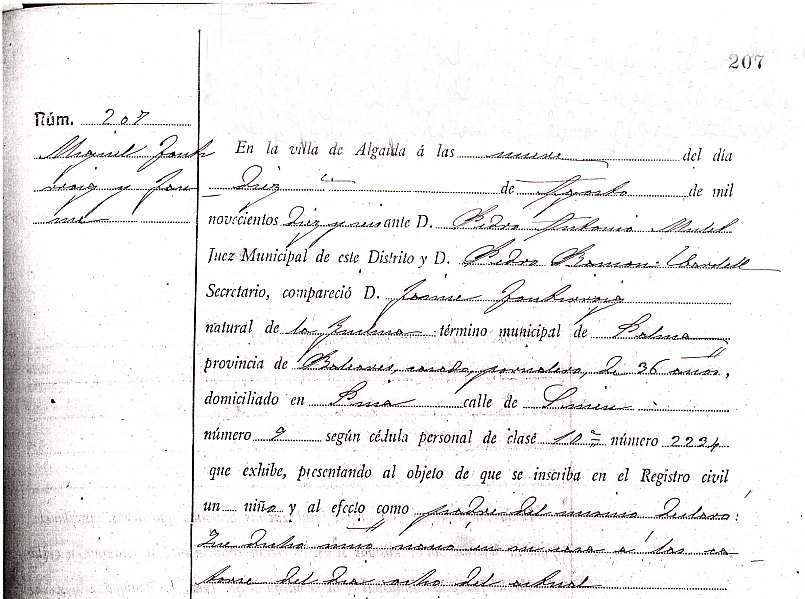 207
Núm. 207
Miguel
y Jau
me
En la villa de Algaida á las nueve del día
Diez de Agosto de mil
novecientos diez y seis ante D. Pedro Antonio Mulet
Juez Municipal de este Distrito y D. Pedro Ramon
Secretario, compareció D. Jaime
natural de la término municipal de Palma
provincia de Baleares, casado, jornalero, de 36 años,
domiciliado en Pina calle de
número 9 según cédula personal de clase 10ª número 2234
que exhibe, presentando al objeto de que se inscriba en el Registro civil
un niño y al efecto como padre del mismo declara:
Que dicho niño nació en su casa a las ca
torce del dia ocho del actual